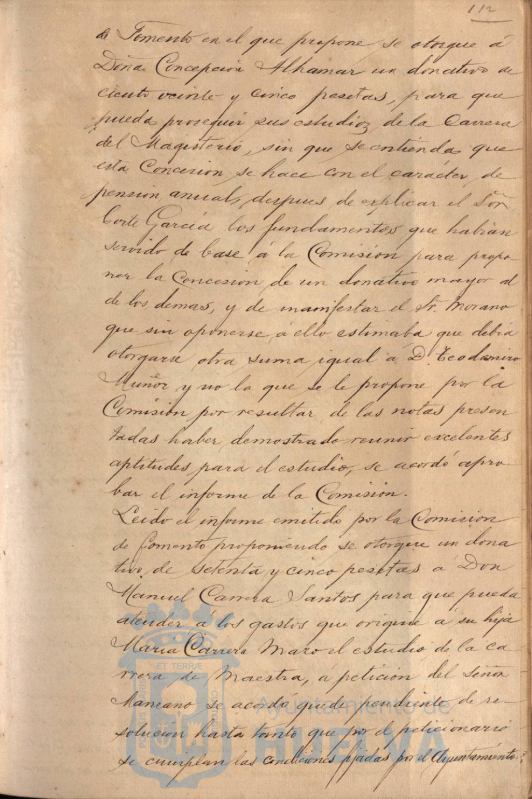 112
de Fomento en el que propone se otorgue á
Doña Concepción Alhamar un donativo de
ciento veinte y cinco pesetas, para que
pueda proseguir sus estudios de la Carrera
del Magisterio, sin que se entienda que
esta Concesión, se hace con el carácter de
pensión anual, despues de explicar el Sõr
Corte García los fundamentos que habian
servido de base á la Comisión para propo
ner la Concesión de un donativo mayor al
de los demas, y de manifestar el Sr. Morano
que sin oponerse á ello estimaba que debia
otorgarse otra suma igual á D. Teodomiro
Muñoz y no la que se le propone por la
Comisión por resultar de las notas presen
tadas haber demostrado reunir excelentes
aptitudes para el estudio, se acordó apro
bar el informe de la Comisión.
Leido el informe emitido por la Comision
de fomento proponiendo se otorgue un dona
tivo de setenta y cinco pesetas a Don
Manuel Carrera Santos para que pueda
atender á los gastos que origine á su hija
María Carrera Maro el estudio de la ca
rrera de Maestra, á petición del Señor
Manzano se acordó quede pendiente de re
solucion hasta tanto que por el peticionario
se cumplan las condiciones fijadas por el Ayuntamiento
Ayuntamiento de
HUELVA